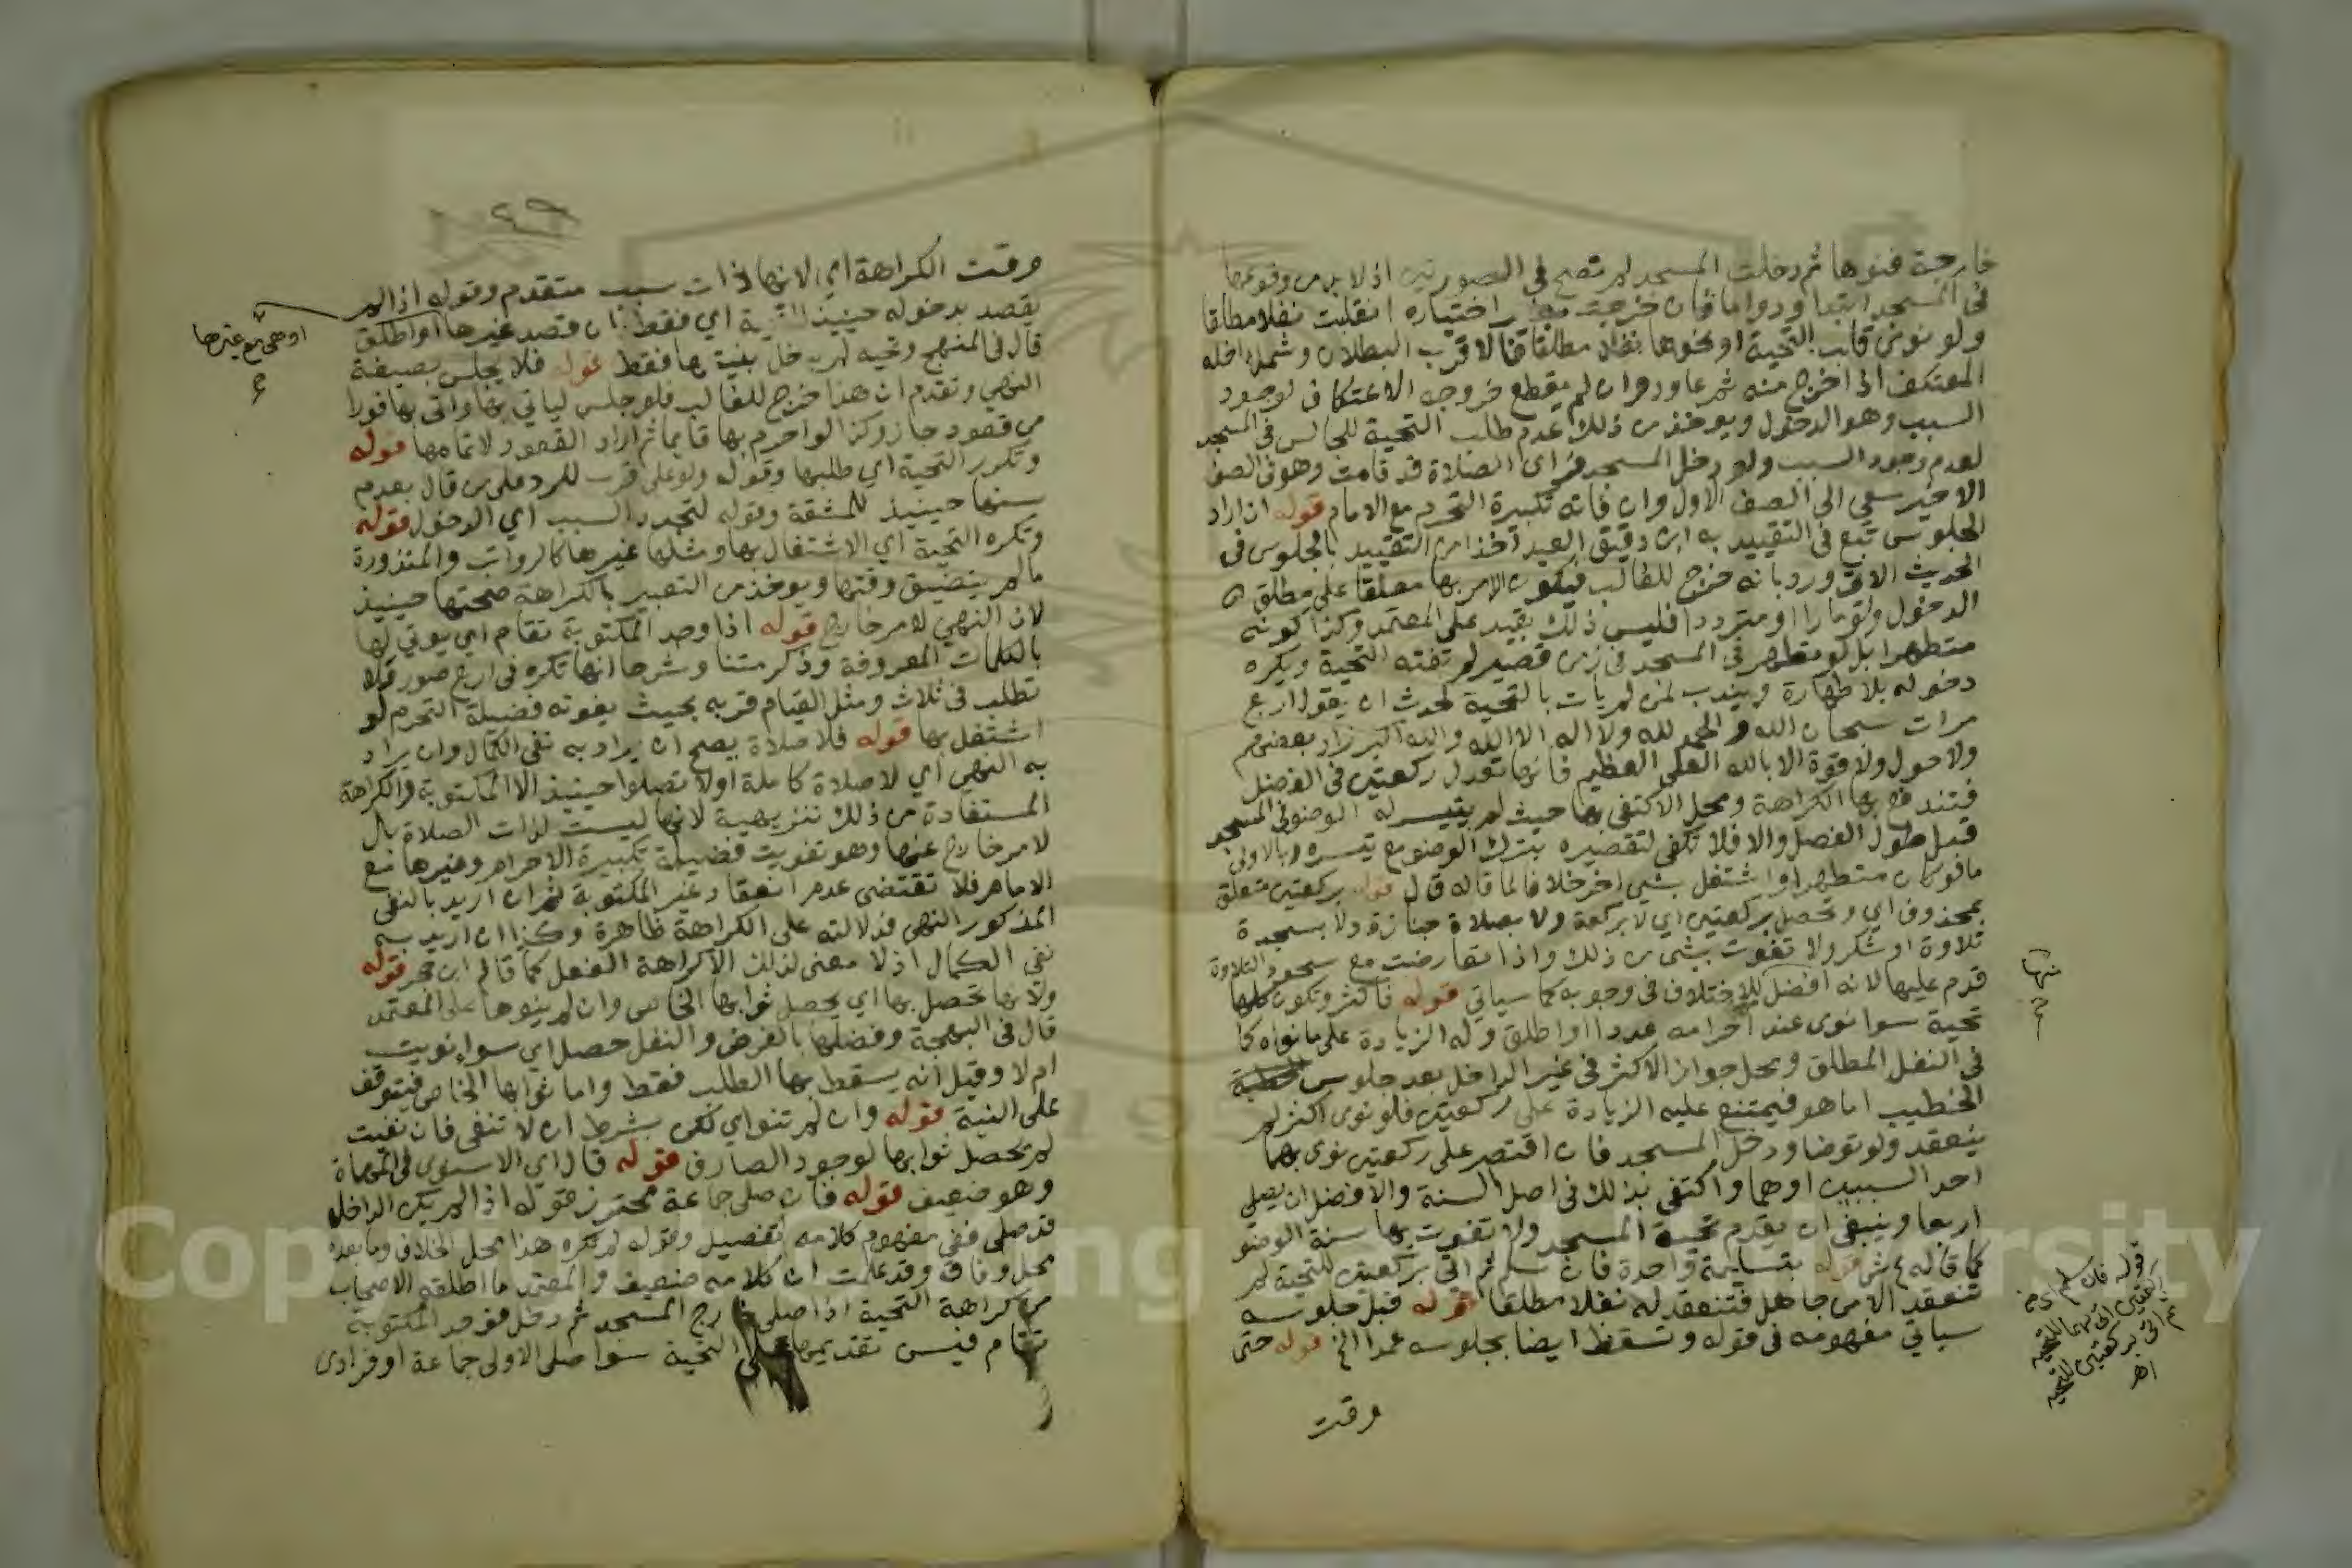 خارجة فنوها ثم دخلت المسجد لم تصح في الصورتين اذ لا بد من وقوعها
في المسجد ابتدا ودواما فان خرجت اختياره انقلبت نفلا مطلقا
ولو نوى التحية او نحوها مطلقا فالاقرب البطلان وشمل داخله
المعتكف اذا خرج منه شرعا ودوان لم يقطع خروجه الاعتكاف لوجود
السبب وهو الدخول ويوخذ من ذلك عدم طلب التحية للجالس في المسجد
لعدم وجود السبب ولو دخل المسجد فراى الصلاة قد قامت وهو في الصف
الاخير سعى الى الصف الاول وان فاته تكبيرة التحرم مع الامام قوله ان اراد
الجلوس تبع في التقييد به ابن دقيق العيد اخذا من التقييد بالجلوس في
الحديث الاتي ورد بانه خرج للغالب فيكون الامر بها معلقا على مطلق
الدخول ولو مارا او مترددا فليس ذلك بقيد على المعتمد وكذا كونه
متطهرا بل لو تطهر في المسجد في زمن قصير لم تفته التحية ويكره
دخوله بلا طهارة ويندب لمن لم يات بالتحية لحدث ان يقول اربع
مرات سبحان الله والحمد لله ولا اله الا الله والله اكبر زاد بعضهم
ولا حول ولا قوة الا بالله العلي العظيم فانها تعدل ركعتين في الفضل
فتندفع بها الكراهة ومحل الاكتفى بها حيث لم يتيسر له الوضو في المسجد
قبل طول الفصل والا فلا تكفي لتقصيره بترك الوضو مع تيسره وبالاولى
ما لو كان متطهرا واشتغل بشي اخر خلافا لما قاله ق ل قوله بركعتين متعلق
بمحذوف اي وتحصل بركعتين اي لا بركعة ولا بصلاة جنازة ولا بسجدة
تلاوة او شكر ولا تفوت بشي من ذلك واذا تعارضت مع سجود التلاوة
قدم عليها لانه افضل للاختلاف في وجوبه كما سياتي قوله فاكثر وتكون كلها
تحية سوا نوى عند احرامه عددا او اطلق وله الزيادة على ما نواه كما
في النفل المطلق ومحل جواز الاكثر في غير الداخل بعد جلوس
الخطيب اما هو فيمتنع عليه الزيادة على ركعتين فلو نوى اكثر لم
ينعقد ولو توضا ودخل المسجد فان اقتصر على ركعتين نوى بهما
احد السببين اوهما واكتفى بذلك في اصل السنة والافضل ان يصلي
اربعا وينبغي ان يقدم تحية المسجد ولا تفوت بها سنة الوضو
كما قاله ع ش قوله بتسليمة واحدة فان سلم ثم اتى بركعتين للتحية لم
تنعقد الا من جاهل فتنعقد له نفلا مطلقا قوله قبل جلوسه
سياتي مفهومه في قوله وتسقط ايضا بجلوسه عمدا الخ قوله حتى
وقت
منها
قوله فان سلم اي من
ركعتين اتى بهما للتحية
ثم اتى بركعتين للتحية
اهـ
وقت الكراهة اي لانها ذات سبب متقدم وقوله اذا لم
يقصد بدخوله حينيذ التحية اي فقط بان قصد غيرها او اطلق
او هي مع غيرها
قال في المنهج وتحيه لم يدخل بنيتها فقط قوله فلا يجلس بصيغة
النهي وتقدم ان هذا خرج للغالب فلو جلس لياتي بها واتى بها فورا
من قعود جاز وكذا لو احرم بها قايما ثم اراد القعود لاتمامها قوله
وتكرر التحية اي طلبها وقوله ولو على قرب للرد على من قال بعدم
سنها حينيذ للمشقة وقوله لتجدد السبب اي الدخول قوله
وتكره التحية اي الاشتغال بها ومثلها غيرها كالرواتب والمنذورة
ما لم يتضيق وقتها ويوخذ من التعبير بالكراهة صحتها حينيذ
لان النهي لامر خارج قوله اذا وجد المكتوبة تقام اي يوتي لها
بالكلمات المعروفة وذكر متنا وشرحا انها تكره في اربع صور فلا
تطلب في ثلاث ومثل القيام قربه بحيث يفوته فضيلة التحرم لو
اشتغل بها قوله فلا صلاة يصح ان يراد به نفي الكمال وان يراد
به النهي اي لا صلاة كاملة او لا تصلوا حينيذ الا المكتوبة فالكراهة
المستفادة من ذلك تنزيهية لانها ليست لذات الصلاة بل
لامر خارج عنها وهو تفويت فضيلة تكبيرة الاحرام وغيرها مع
الامام فلا تقتضي عدم انعقاد غير المكتوبة ثم ان اريد بالنفي
المذكور النهي فدلالته على الكراهة ظاهرة وكذا ان اريد به
نفي الكمال اذ لا معنى لذلك الا كراهة الفعل كما قاله ابن حجر قوله
ولانها تحصل بها اي يحصل ثوابها الخاص وان لم ينوها على المعتمد
قال في البهجة وفضلها بالفرض والنفل حصل اي سواء نويت
ام لا وقيل انه يسقط بها الطلب فقط واما ثوابها الخاص فيتوقف
على النية قوله وان لم تنو اي لكن بشرط ان لا تنفى فان نفيت
لم يحصل ثوابها لوجود الصارف قوله قال اي الاسنوي في المهماة
وهو ضعيف قوله فان صلى جماعة محترز قوله اذا لم يكن الداخل
قد صلى ففي مفهوم كلامه تفصيل وقوله لم تكره هذا محل الخلاف وما بعده
محل وفاق وقد علمت ان كلامه ضعيف والمعتمد ما اطلقه الاصحاب
من كراهة التحية اذا صلى خارج المسجد ثم دخل فوجد المكتوبة
تقام فيسن تقديمها على التحية سوا صلى الاولى جماعة او فرادى
Copyright © King Saud University